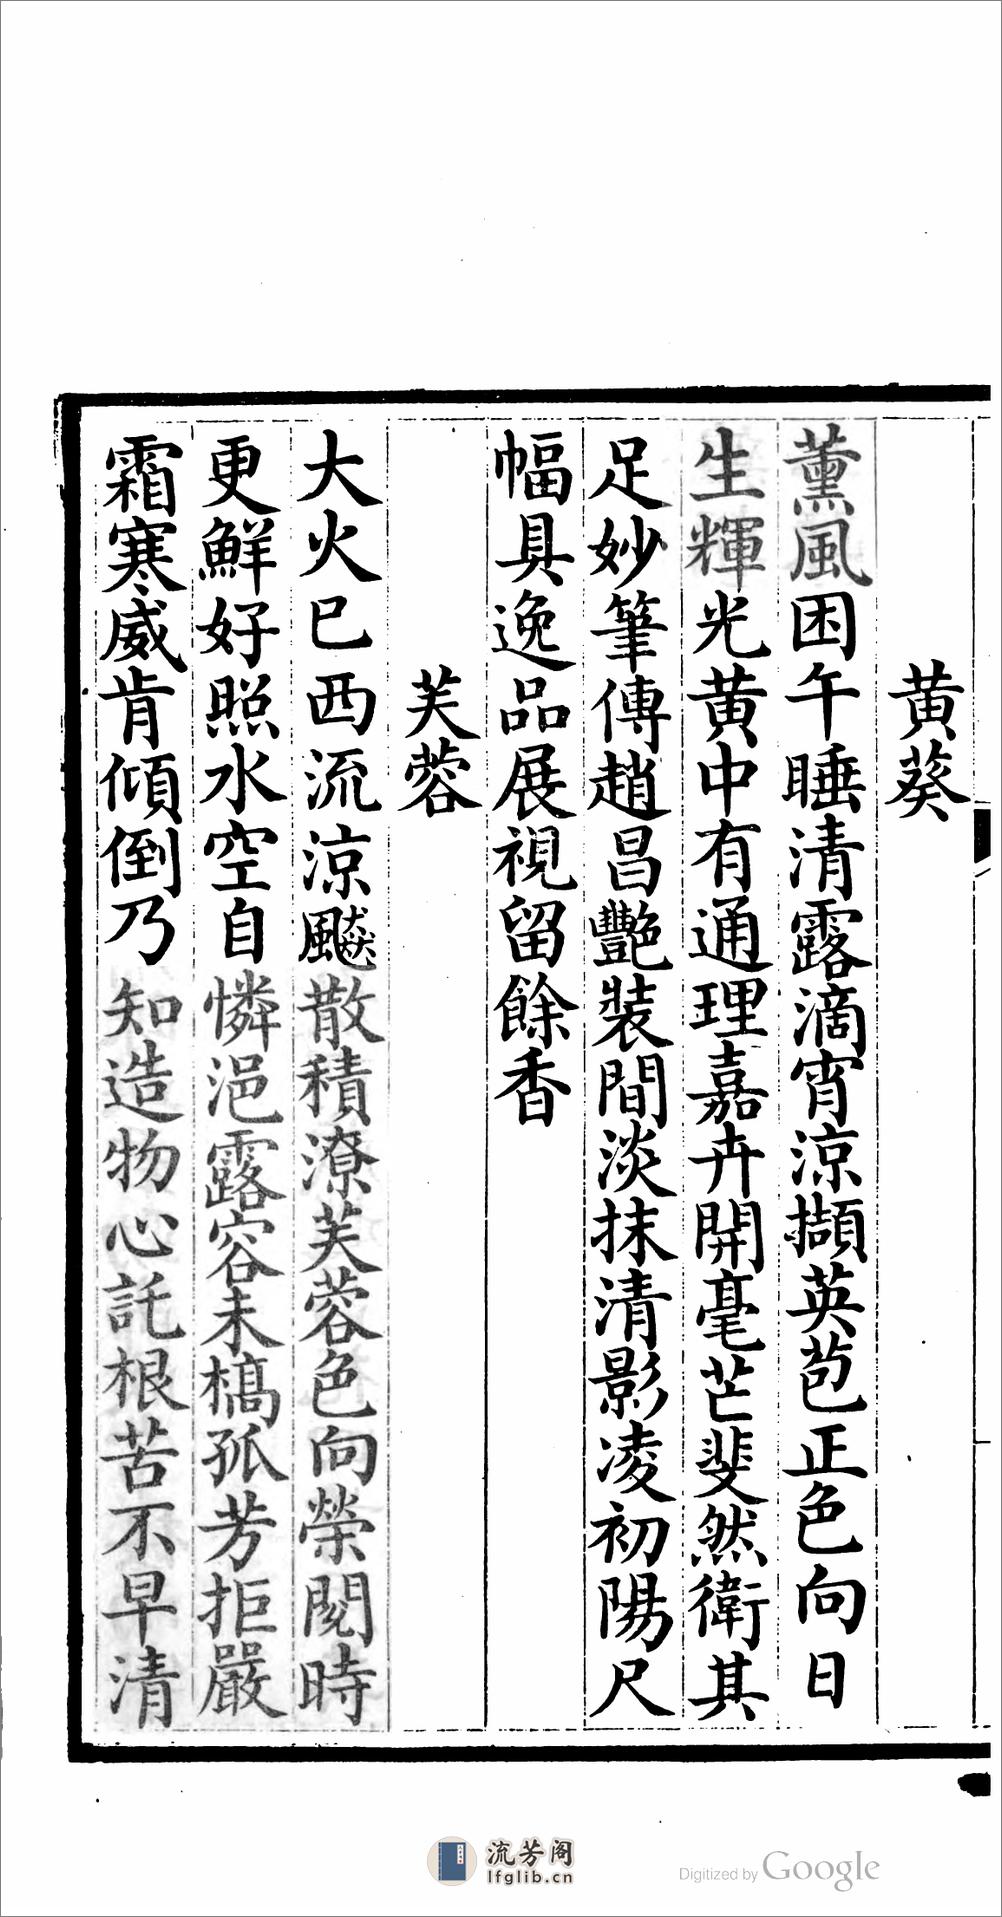 黄葵
薰風困午睡清露滴宵涼擷英苞正色向日
生輝光黄中有通理嘉卉開毫芒斐然衛其
足妙筆傳趙昌豔裝間淡抹清影凌初陽尺
幅具逸品展視留餘香
芙蓉
大火已西流涼飈散積潦芙蓉色向榮閱時
更鮮好照水空自憐浥露容未槁孤芳拒嚴
霜寒威肯傾倒乃知造物心託根苦不早清
流芳阁
lfglib.cn
Digitized by Google